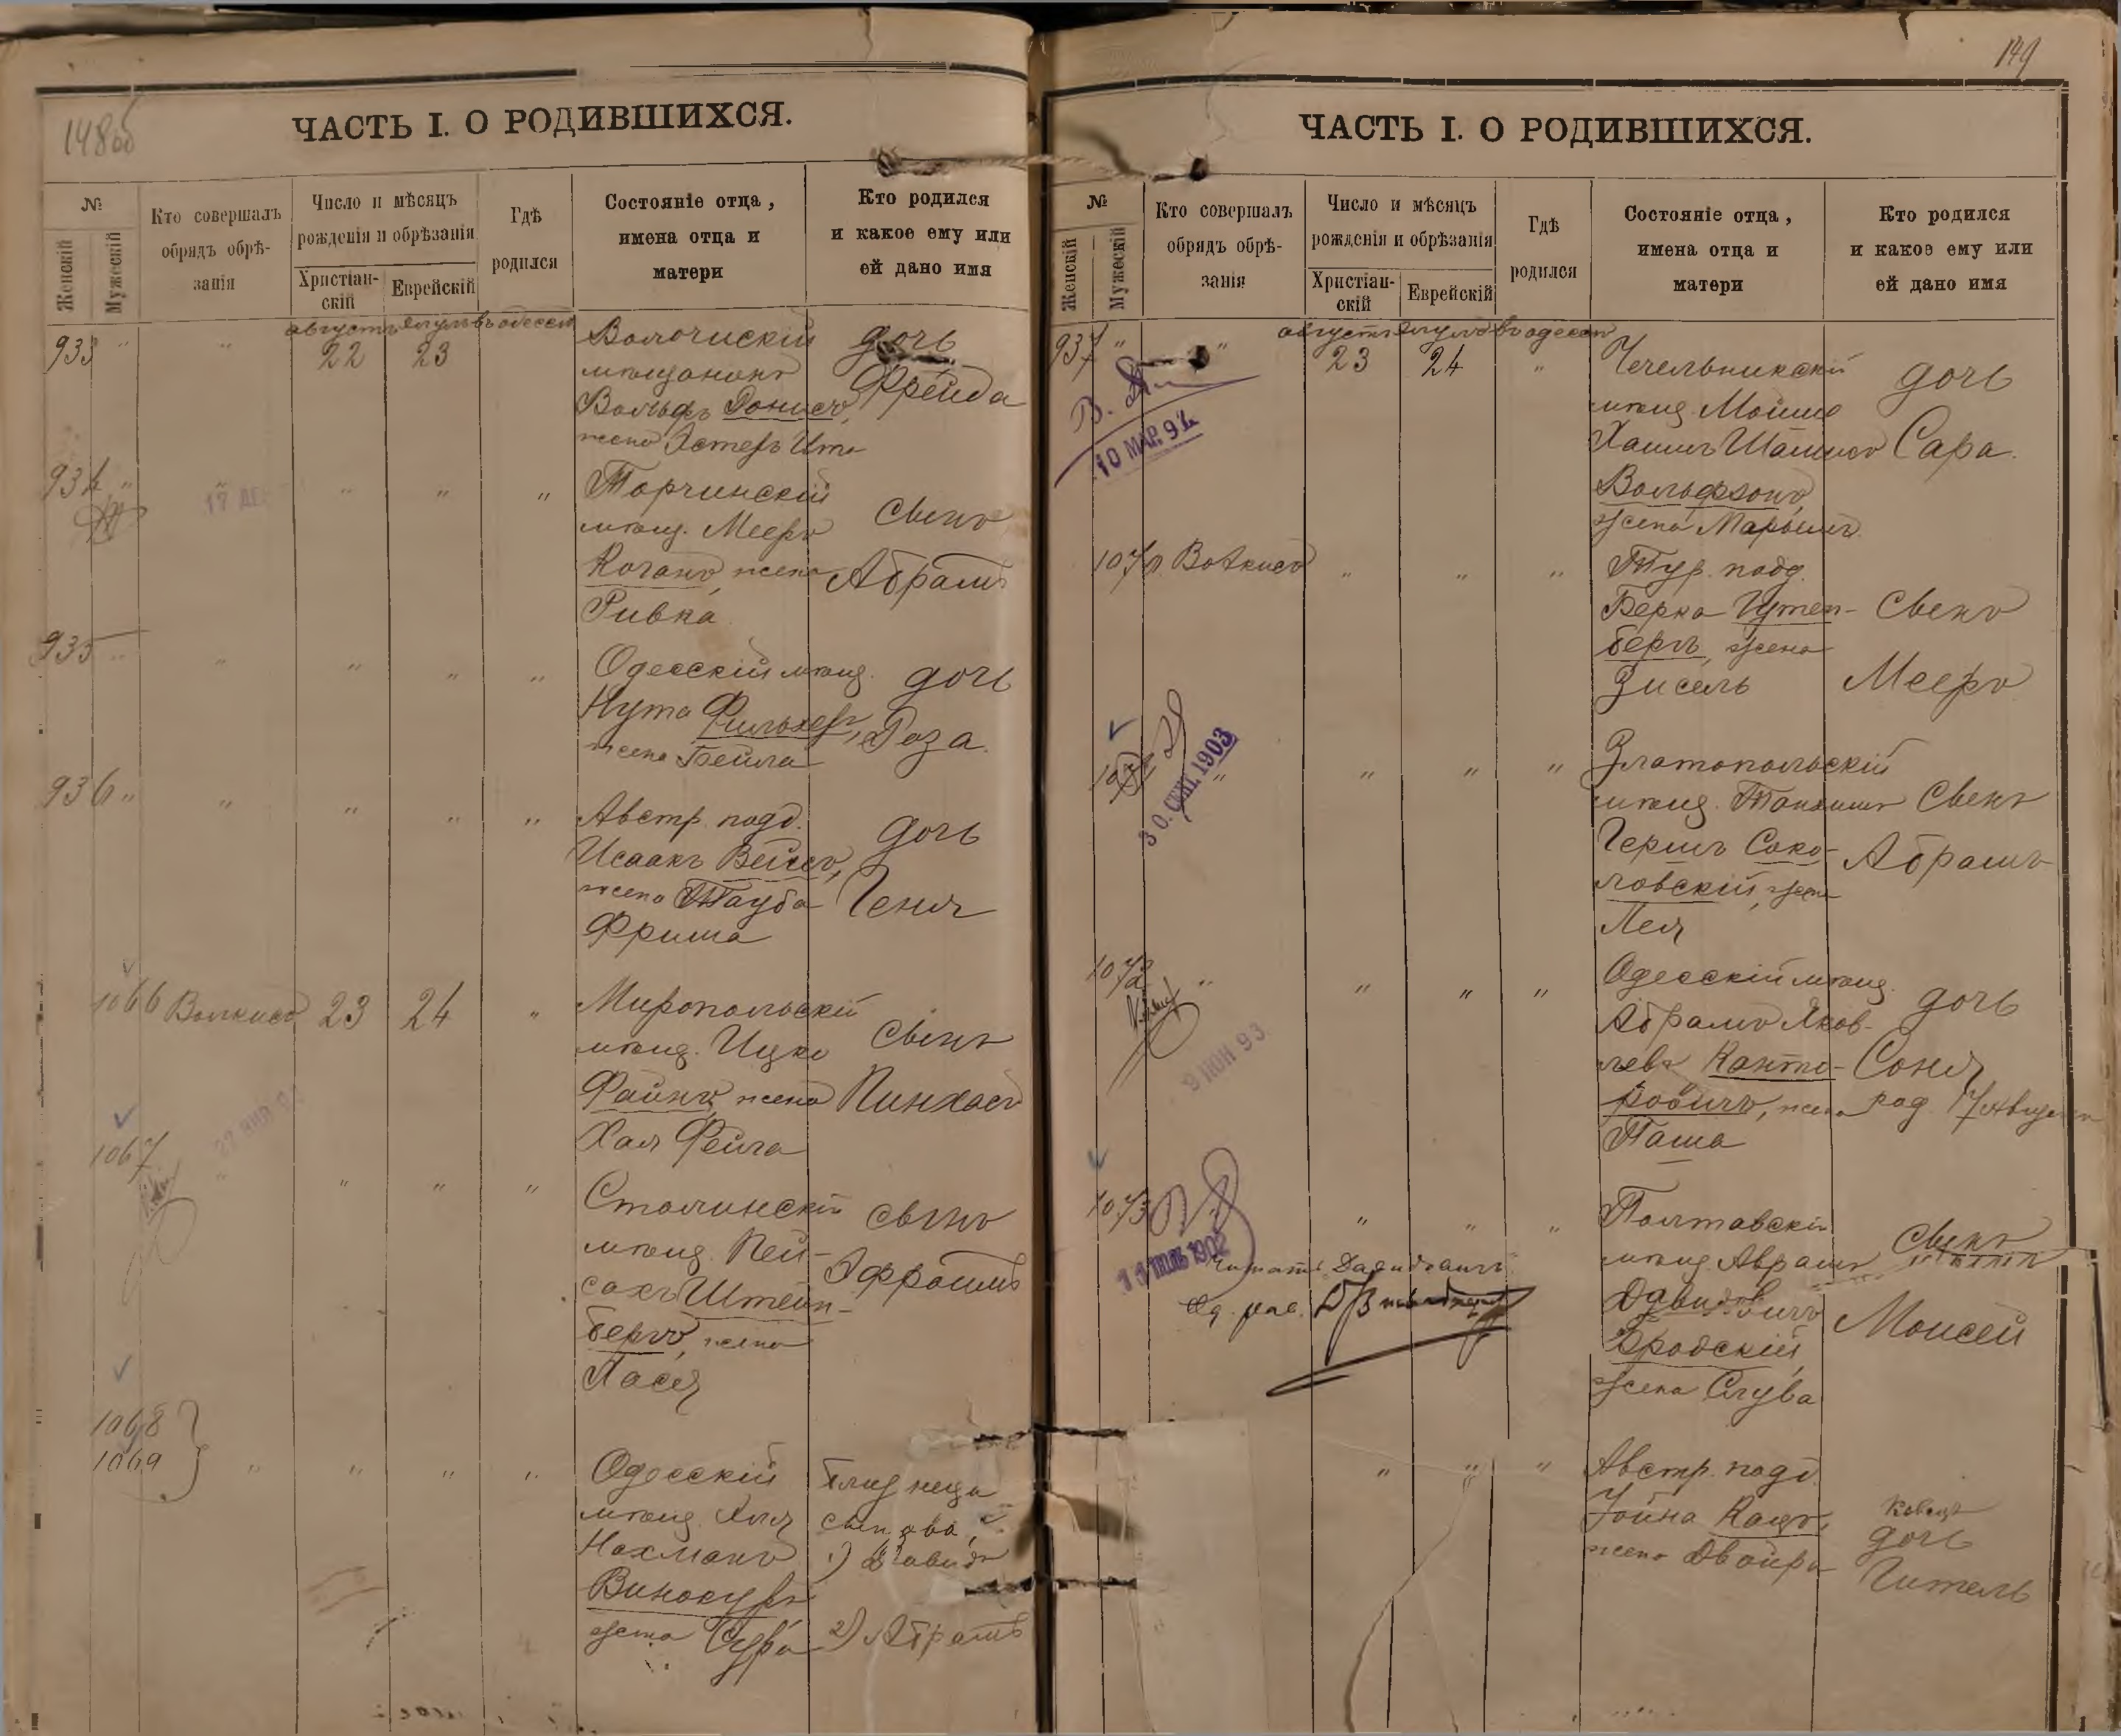 148об
ЧАСТЬ I. О РОДИВШИХСЯ.
№
Женскій
Мужескій
Кто совершалъ
обрядъ обрѣ-
занія
Число и мѣсяцъ
рожденія и обрѣзанія
Христіан-
скій
Еврейскій
Гдѣ
родился
Состояніе отца,
имена отца и
матери
Кто родился
и какое ему или
ей дано имя
августъ элулъ въ одессѣ
933 " " 22 23
Волочискій
мѣщанинъ
Вольфъ Донисъ,
жена Эстеръ Ита
дочь
Фрейда
934 " " " " "
17 ДЕ
Торчинскій
мѣщ. Мееръ
Коганъ, жена
Ривка
сынъ
Абрамъ
935 " " " " "
Одесскій мѣщ.
Нута
жена Бейла
дочь
Роза.
936 " " " " "
Австр. подд.
Исаакъ Вейсъ,
жена Тауба
Фрима
дочь
Геня
1066 Волкисъ 23 24 "
Миропольскій
мѣщ. Ицко
Файнъ, жена
Хая Фейга
сынъ
Пинхасъ
1067 " " " "
Столинскій
мѣщ. Пей-
сахъ Штейн-
бергъ, жена
Лася
сынъ
Эфроимъ
1068
1069 " " " "
Одесскій
мѣщ.
Нахманъ
Винокуръ
жена Сура
близнецы
сын. два,
1) Давидъ
2) Абрамъ
149
ЧАСТЬ I. О РОДИВШИХСЯ.
№
Женскій
Мужескій
Кто совершалъ
обрядъ обрѣ-
занія
Число и мѣсяцъ
рожденія и обрѣзанія
Христіан-
скій
Еврейскій
Гдѣ
родился
Состояніе отца,
имена отца и
матери
Кто родился
и какое ему или
ей дано имя
августъ элулъ въ одессѣ
937 " " 23 24 "
10 МАР. 92
Чечельникскій
мѣщ. Мойше
Хаимъ
Вольфзонъ,
жена Марьимъ
дочь
Сара.
1070 Волкисъ " " "
Тур. подд.
Берко Гутен-
бергъ, жена
Зисель
сынъ
Мееръ
1071 " " " "
30. СЕН. 1903
Златопольскій
мѣщ. Танхимъ
Гершъ Соко-
ловскій, жена
Лея
сынъ
Абрамъ
1072 " " " "
9 ИЮН 93
Одесскій мѣщ.
Абрамъ Яков-
левъ Канто-
ровичъ, жена
Паша
дочь
Соня
род. 17 августа
1073 " " "
11 ИЮЛЬ 1902
Читать Давидовичъ
Полтавскій
мѣщ. Аврамъ
Давидовичъ
Бродскій,
жена Слува
сынъ
Моисей
" " "
Австр. подд.
Іойна Кацъ,
жена Двойра
дочь
Гитель